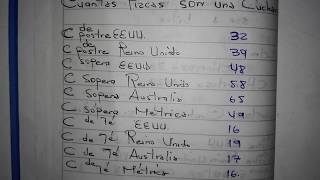 Cuantas Pizcas son una Cuchar
C de postre EEUU 32
C de postre Reino Unido 39
C sopera EEUU 48
C Sopera Reino Unido 58
C Sopera Australia 65
C Sopera Métrica 49
C de Té EEUU 16
C de Té Reino Unido 19
C de Té Australia 17
C de Té Métrica 16.